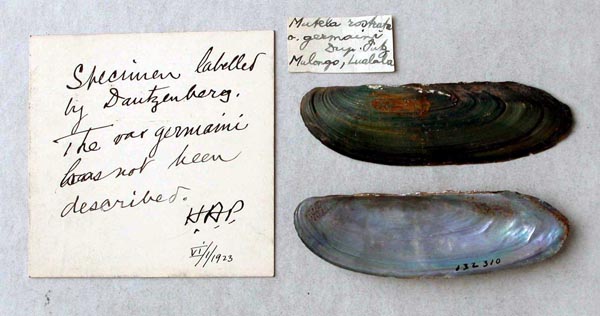 Specimen labelled
by Dautzenberg.
The var germaini
has not been
described.
H.A.P.
VI/1/1923
Mutela rostrata
v. germaini
Mulongo, Lualaba
132310